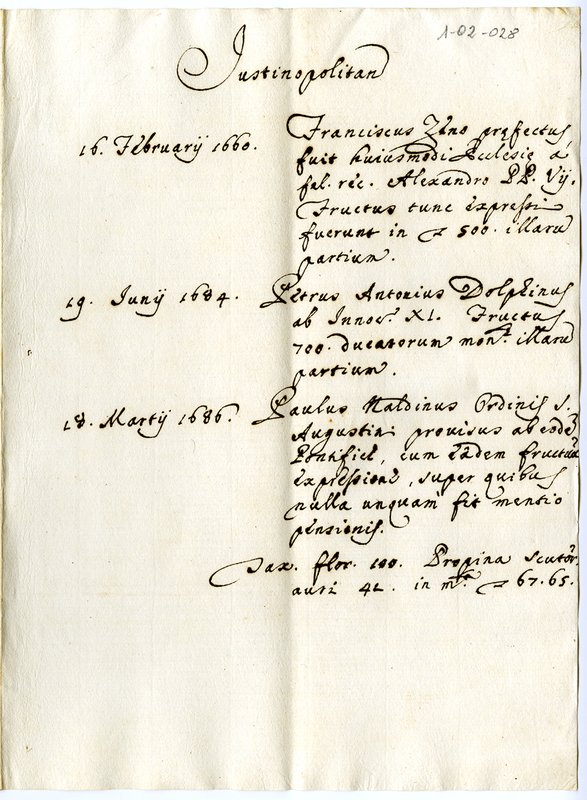 1-02-028
Justinopolitan
16. Februarij 1660.
Franciscus Zeno præfectus
fuit huiusmodi Ecclesiæ à
fel. rec. Alexandro PP. Vij.
Fructus tunc expressi
fuerunt in 500. illarũ
partium.
19. Junij 1684.
Petrus Antonius Dolphinus
ab Innoc.º XI. Fructus
700. ducatorum mon.ta illarũ
partium.
18. Martij 1686.
Paulus Naldinus Ordinis S.
Augustini provisus ab eodẽ
Pontifice, cum eadem fructuũ
expressione, super quibus
nulla unquam fit mentio
pensionis.
Tax. flor. 100. Propina scutor.
auri 42. in m.ta 67.65.